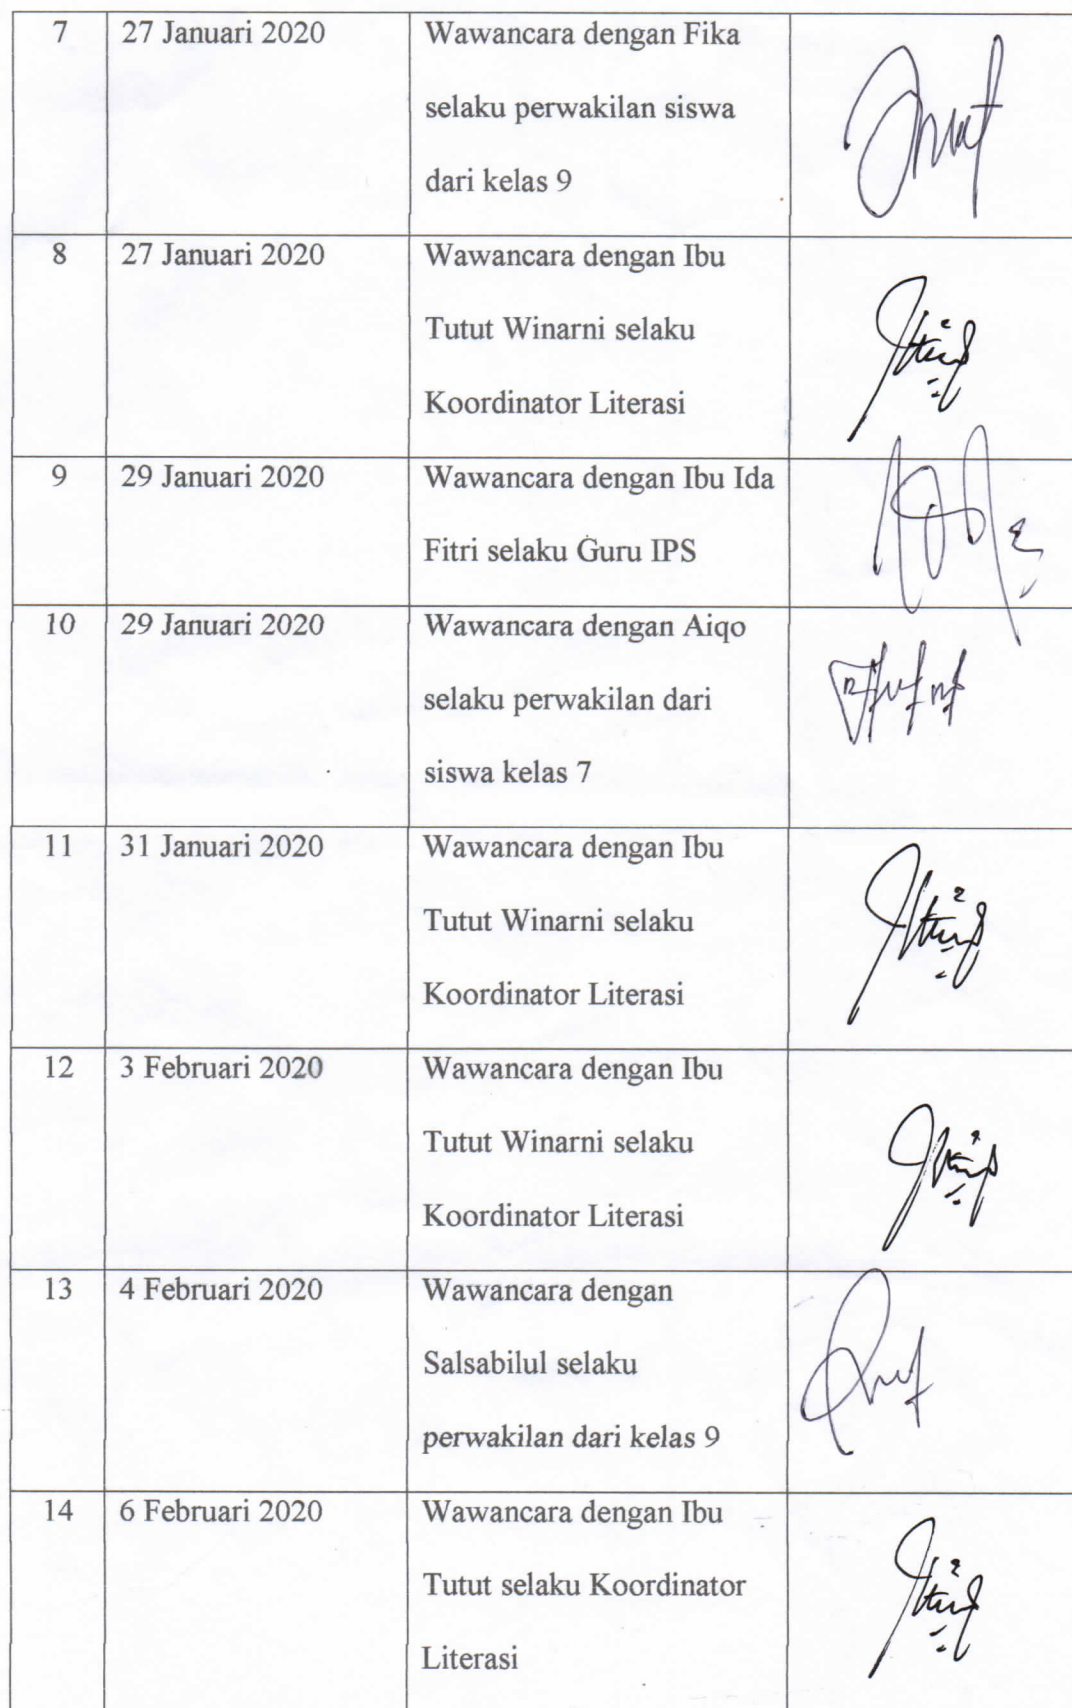 7 27 Januari 2020 Wawancara dengan Fika
selaku perwakilan siswa
dari kelas 9
8 27 Januari 2020 Wawancara dengan Ibu
Tutut Winarni selaku
Koordinator Literasi
9 29 Januari 2020 Wawancara dengan Ibu Ida
Fitri selaku Guru IPS
10 29 Januari 2020 Wawancara dengan Aiqo
selaku perwakilan dari
siswa kelas 7
11 31 Januari 2020 Wawancara dengan Ibu
Tutut Winarni selaku
Koordinator Literasi
12 3 Februari 2020 Wawancara dengan Ibu
Tutut Winarni selaku
Koordinator Literasi
13 4 Februari 2020 Wawancara dengan
Salsabilul selaku
perwakilan dari kelas 9
14 6 Februari 2020 Wawancara dengan Ibu
Tutut selaku Koordinator
Literasi